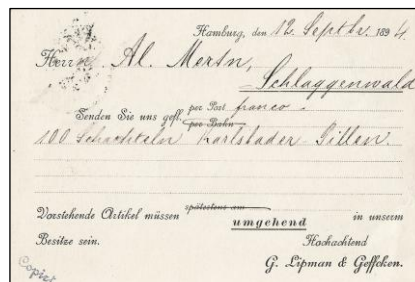 Hamburg, den 12. Septbr. 1894
Herrn Al. Mertn,
Schlaggenwald
Senden Sie uns gefl. per Post franco.
per Bahn
100 Schachteln Karlsbader-Pillen.
Vorstehende Artikel müssen spätestens am umgehend in unserm
Besitze sein.
Hochachtend
G. Lipman & Geffcken.
Copiert